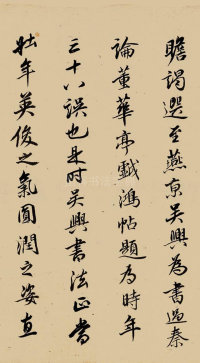 瞻謁選至燕京吳興為書過秦
論董華亭戲鴻帖題為時年
三十八誤也是時吳興書法正當
壯年英俊之氣圓潤之姿直